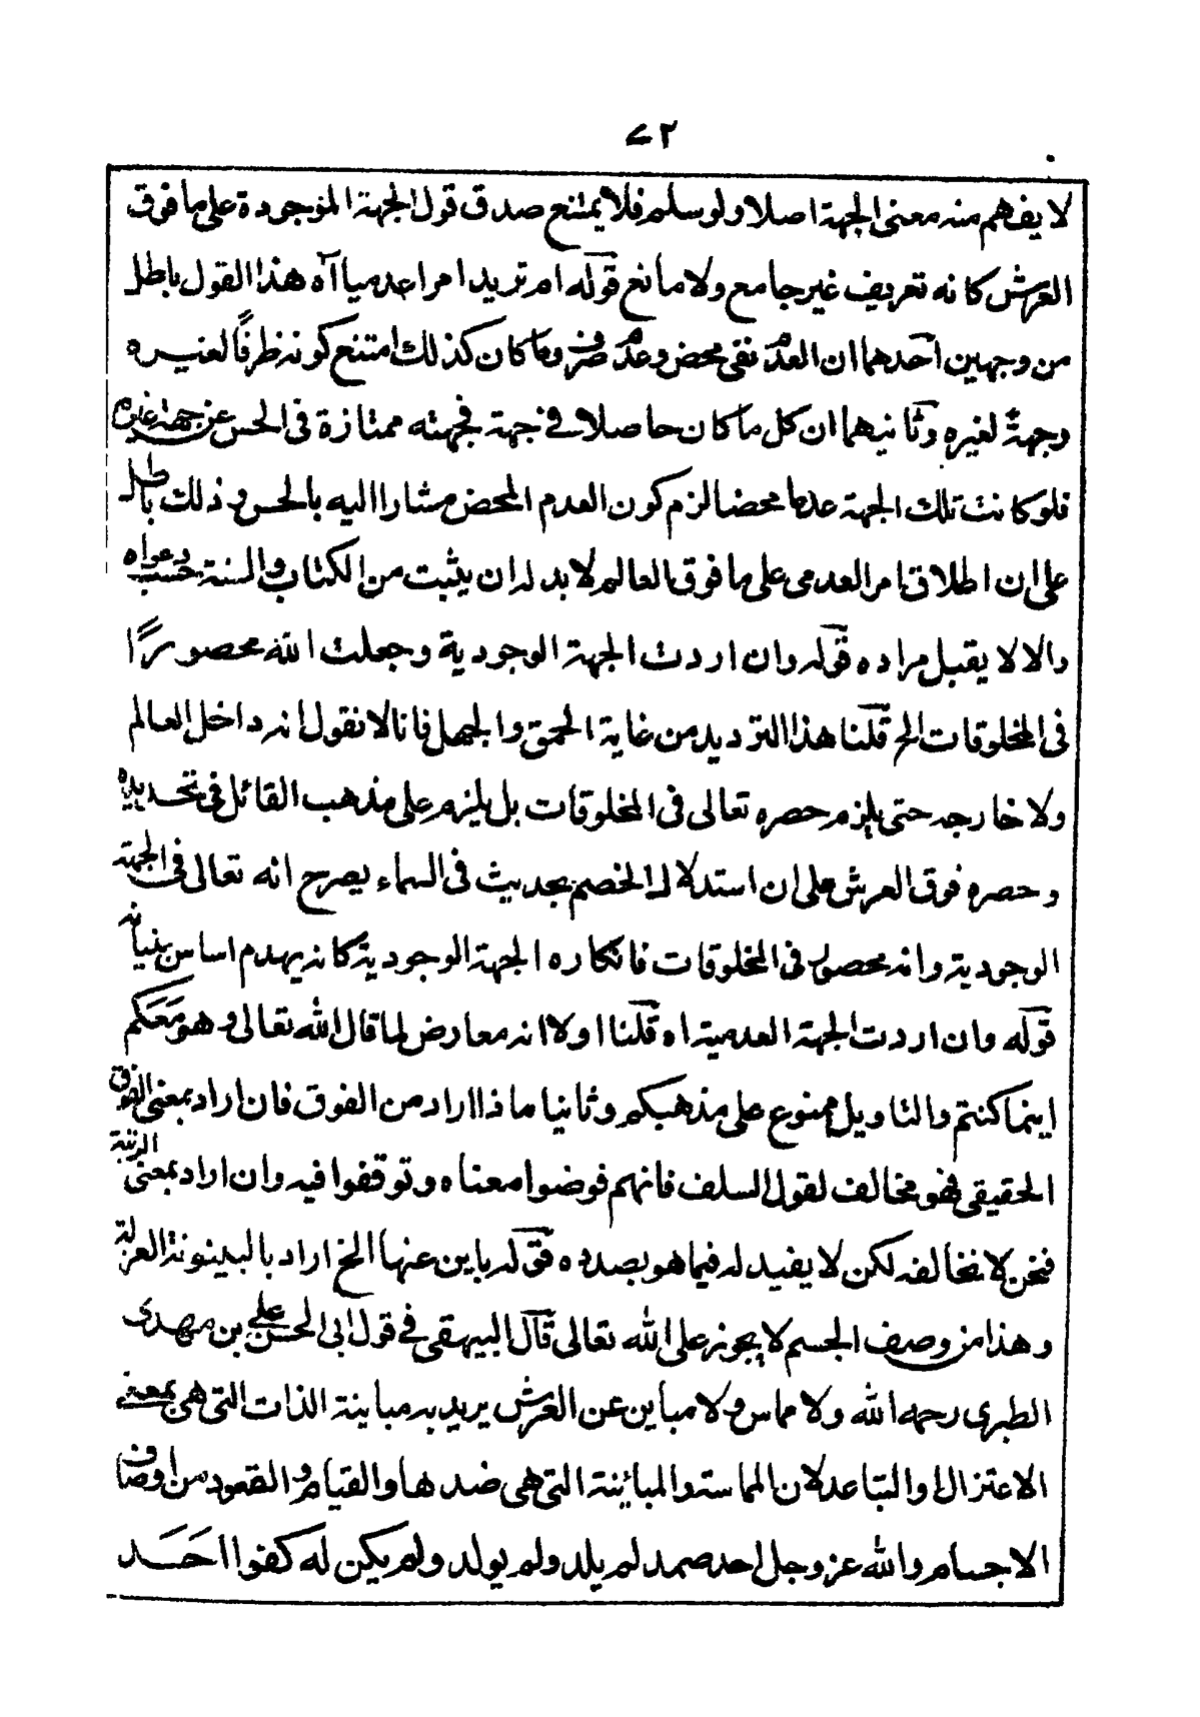 ٧٢
لا يفهم منه معنى الجهة اصلا ولو سلم فلا يمتنع صدق قول الجهة الموجودة على ما فوق
العرش كانه تعريف غير جامع ولا مانع قوله ام تريد امرا عدميا آه هذا القول باطل
من وجهين احدهما ان العدم نفى محض وعدم صرف وما كان كذلك امتنع كونه ظرفًا لغيره
وجهةً لغيره وثانيهما ان كل ما كان حاصلا في جهة فجهته ممتازة فى الحس عن جهة غيره
فلو كانت تلك الجهة عدما محضا لزم كون العدم المحض مشارا اليه بالحس وذلك باطل
على ان اطلاق امر العدمى على ما فوق العالم لا بد له ان يثبت من الكتاب والسنة حسب دعواه
والا لا يقبل مراده قوله وان اردت الجهة الوجودية وجعلت الله محصورًا
فى المخلوقات الخ قلنا هذا الترديد من غاية الحمق والجهل فانا لا نقول انه داخل العالم
ولا خارجه حتى يلزم حصره تعالى فى المخلوقات بل يلزم على مذهب القائل فى تحديده
وحصره فوق العرش على ان استدلال الخصم بحديث فى السماء يصرح انه تعالى فى الجهة
الوجودية وانه محصور فى المخلوقات فانكاره الجهة الوجودية كانه يهدم اساس بنيانه
قوله وان اردت الجهة العدمية اه قلنا اولا انه معارض لما قال الله تعالى وهو مَعَكم
اينما كنتم والتاويل ممنوع على مذهبكم وثانيا ماذا اراد من الفوق فان اراد بمعنى الفوق
الحقيقى فهو مخالف لقول السلف فانهم فوضوا معناه وتوقفوا فيه وان اراد بمعنى الرتبة
فنحن لا نخالفه لكن لا يفيد له فيما هو بصدده قوله باين عنها الخ اراد بالبينونة العزلة
وهذا من وصف الجسم لا يجوز على الله تعالى قال البيهقى في قول ابى الحسن على بن مهدى
الطبرى رحمه الله ولا مماس ولا مباين عن العرش يريد به مباينة الذات التى هى بمعنى
الاعتزال والتباعد لان المماسة والمبائنة التى هى ضدها والقيام والقعود من اوصاف
الاجسام والله عز وجل احد صمد لم يلد ولم يولد ولم يكن له كفوا احَد